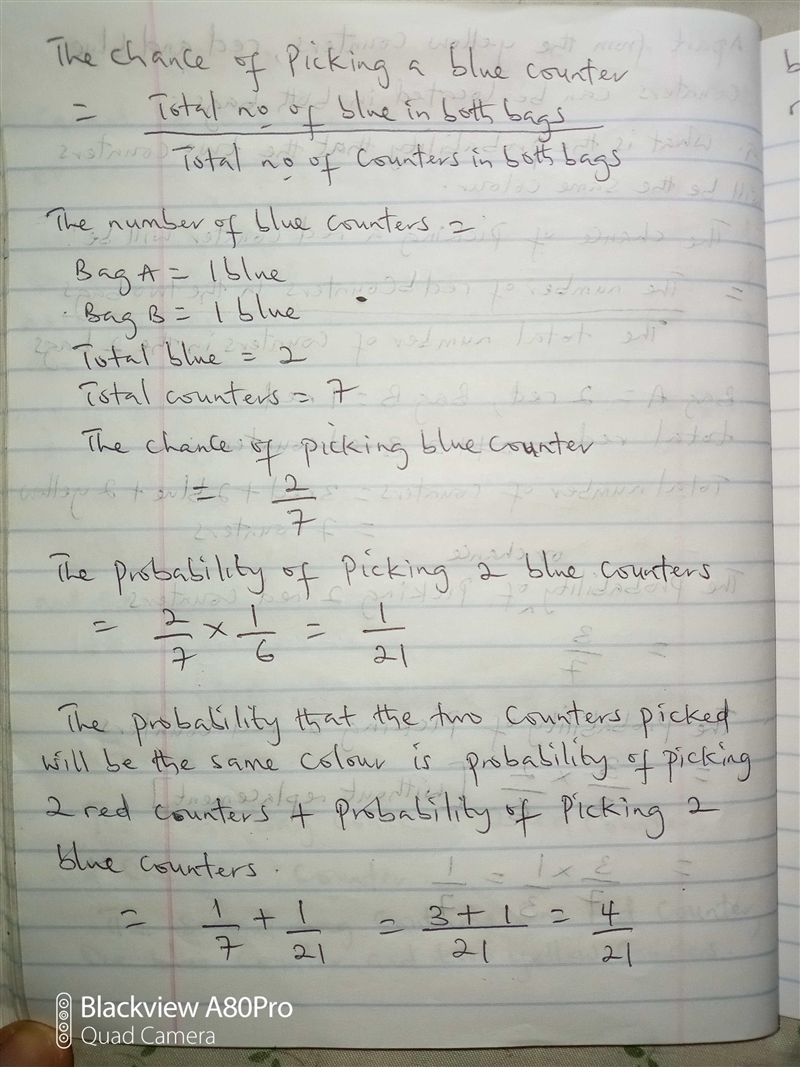 The chance of Picking a blue counter
= Total no of blue in both bags
Total no of Counters in both bags
The number of blue counters =
Bag A = 1 blue
Bag B = 1 blue
Total blue = 2
Total counters = 7
The chance of picking blue counter
= 2/7
The probability of Picking 2 blue counters
= 2/7 × 1/6 = 1/21
The probability that the two Counters picked
will be the same colour is probability of picking
2 red counters + Probability of Picking 2
blue counters.
= 1/7 + 1/21 = 3+1/21 = 4/21
Blackview A80Pro
Quad Camera